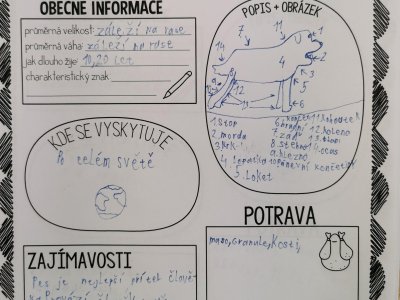 OBECNÉ INFORMACE
průměrná velikost: záleží na rase
průměrná váha: záleží na rase
jak dlouho žije: 10,20 let
charakteristický znak
POPIS + OBRÁZEK
7 11 1
2
14 4 3
5
8
9
13
12
6
1. Stop
2. morda
3. Krk
4. lopatka
5. Loket
7. záď
8. stehno
9. hlezno
10. pánevní končetiny
12. koleno
14. ocas
KDE SE VYSKYTUJE
Po celém světě
POTRAVA
maso, Granule, Kosti,
ZAJÍMAVOSTI
Pes je nejlepší přítel člově-